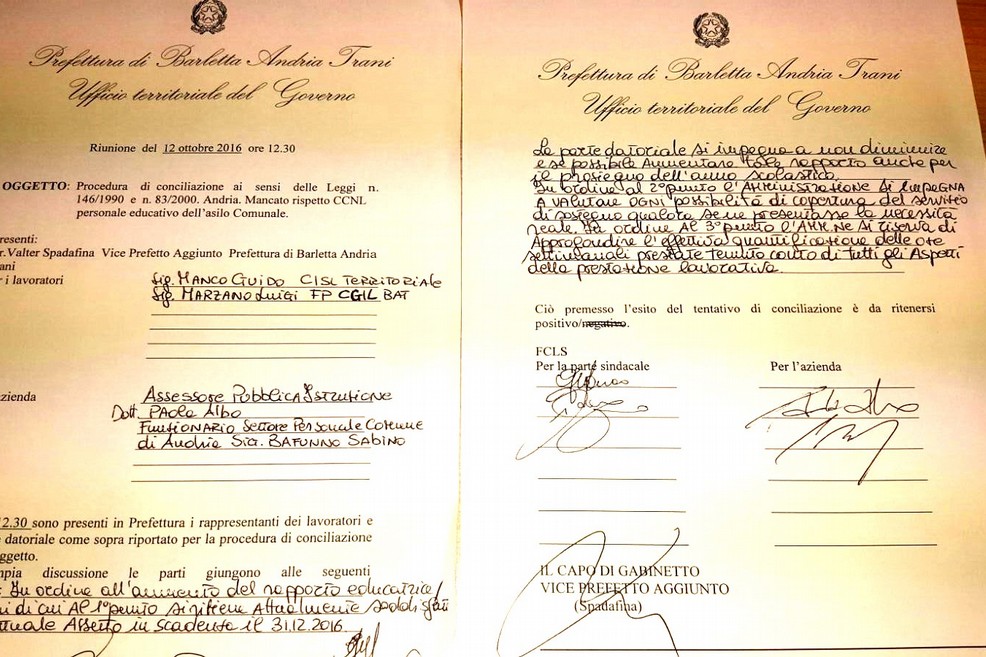 Prefettura di Barletta Andria Trani
Ufficio territoriale del Governo
Riunione del 12 ottobre 2016 ore 12.30
OGGETTO: Procedura di conciliazione ai sensi delle Leggi n.
146/1990 e n. 83/2000. Andria. Mancato rispetto CCNL
personale educativo dell'asilo Comunale.
presenti:
r.Valter Spadafina Vice Prefetto Aggiunto Prefettura di Barletta Andria
ani
r i lavoratori
Sig. MANCO GUIDO CISL TERRITORIALE
Sig. MARZANO Luigi FP CGIL BAT
zienda
Assessore Pubblica Istruzione
Dott. PAOLA Albo
Funzionario Settore Personale Comune
di Andria Sig. BAFUNNO SABINO
12.30 sono presenti in Prefettura i rappresentanti dei lavoratori e
datoriale come sopra riportato per la procedura di conciliazione
ggetto.
mpia discussione le parti giungono alle seguenti
In ordine all'aumento del rapporto educatrice/
ni di cui Al 1° punto si ritiene Attualmente soddisfatt
in scadenza il 31.12.2016
Prefettura di Barletta Andria Trani
Ufficio territoriale del Governo
La parte datoriale si impegna a non diminuire
e se possibile Aumentare tale rapporto anche per
il prosieguo dell'anno scolastico.
In ordine al 2° punto l'AMMINISTRAZIONE SI IMPEGNA
A VALUTARE OGNI possibilità di copertura del servizio
di sostegno qualora se ne presentasse la necessità
reale. In ordine AL 3° punto l'AMM.NE SI riserva di
Approfondire l'effettiva quantificazione delle ore
settimanali prestate tenuto conto di tutti gli Aspetti
della prestazione lavorativa.
Ciò premesso l'esito del tentativo di conciliazione è da ritenersi
positivo/negativo.
FCLS
Per la parte sindacale
Per l'azienda
IL CAPO DI GABINETTO
VICE PREFETTO AGGIUNTO
(Spadafina)